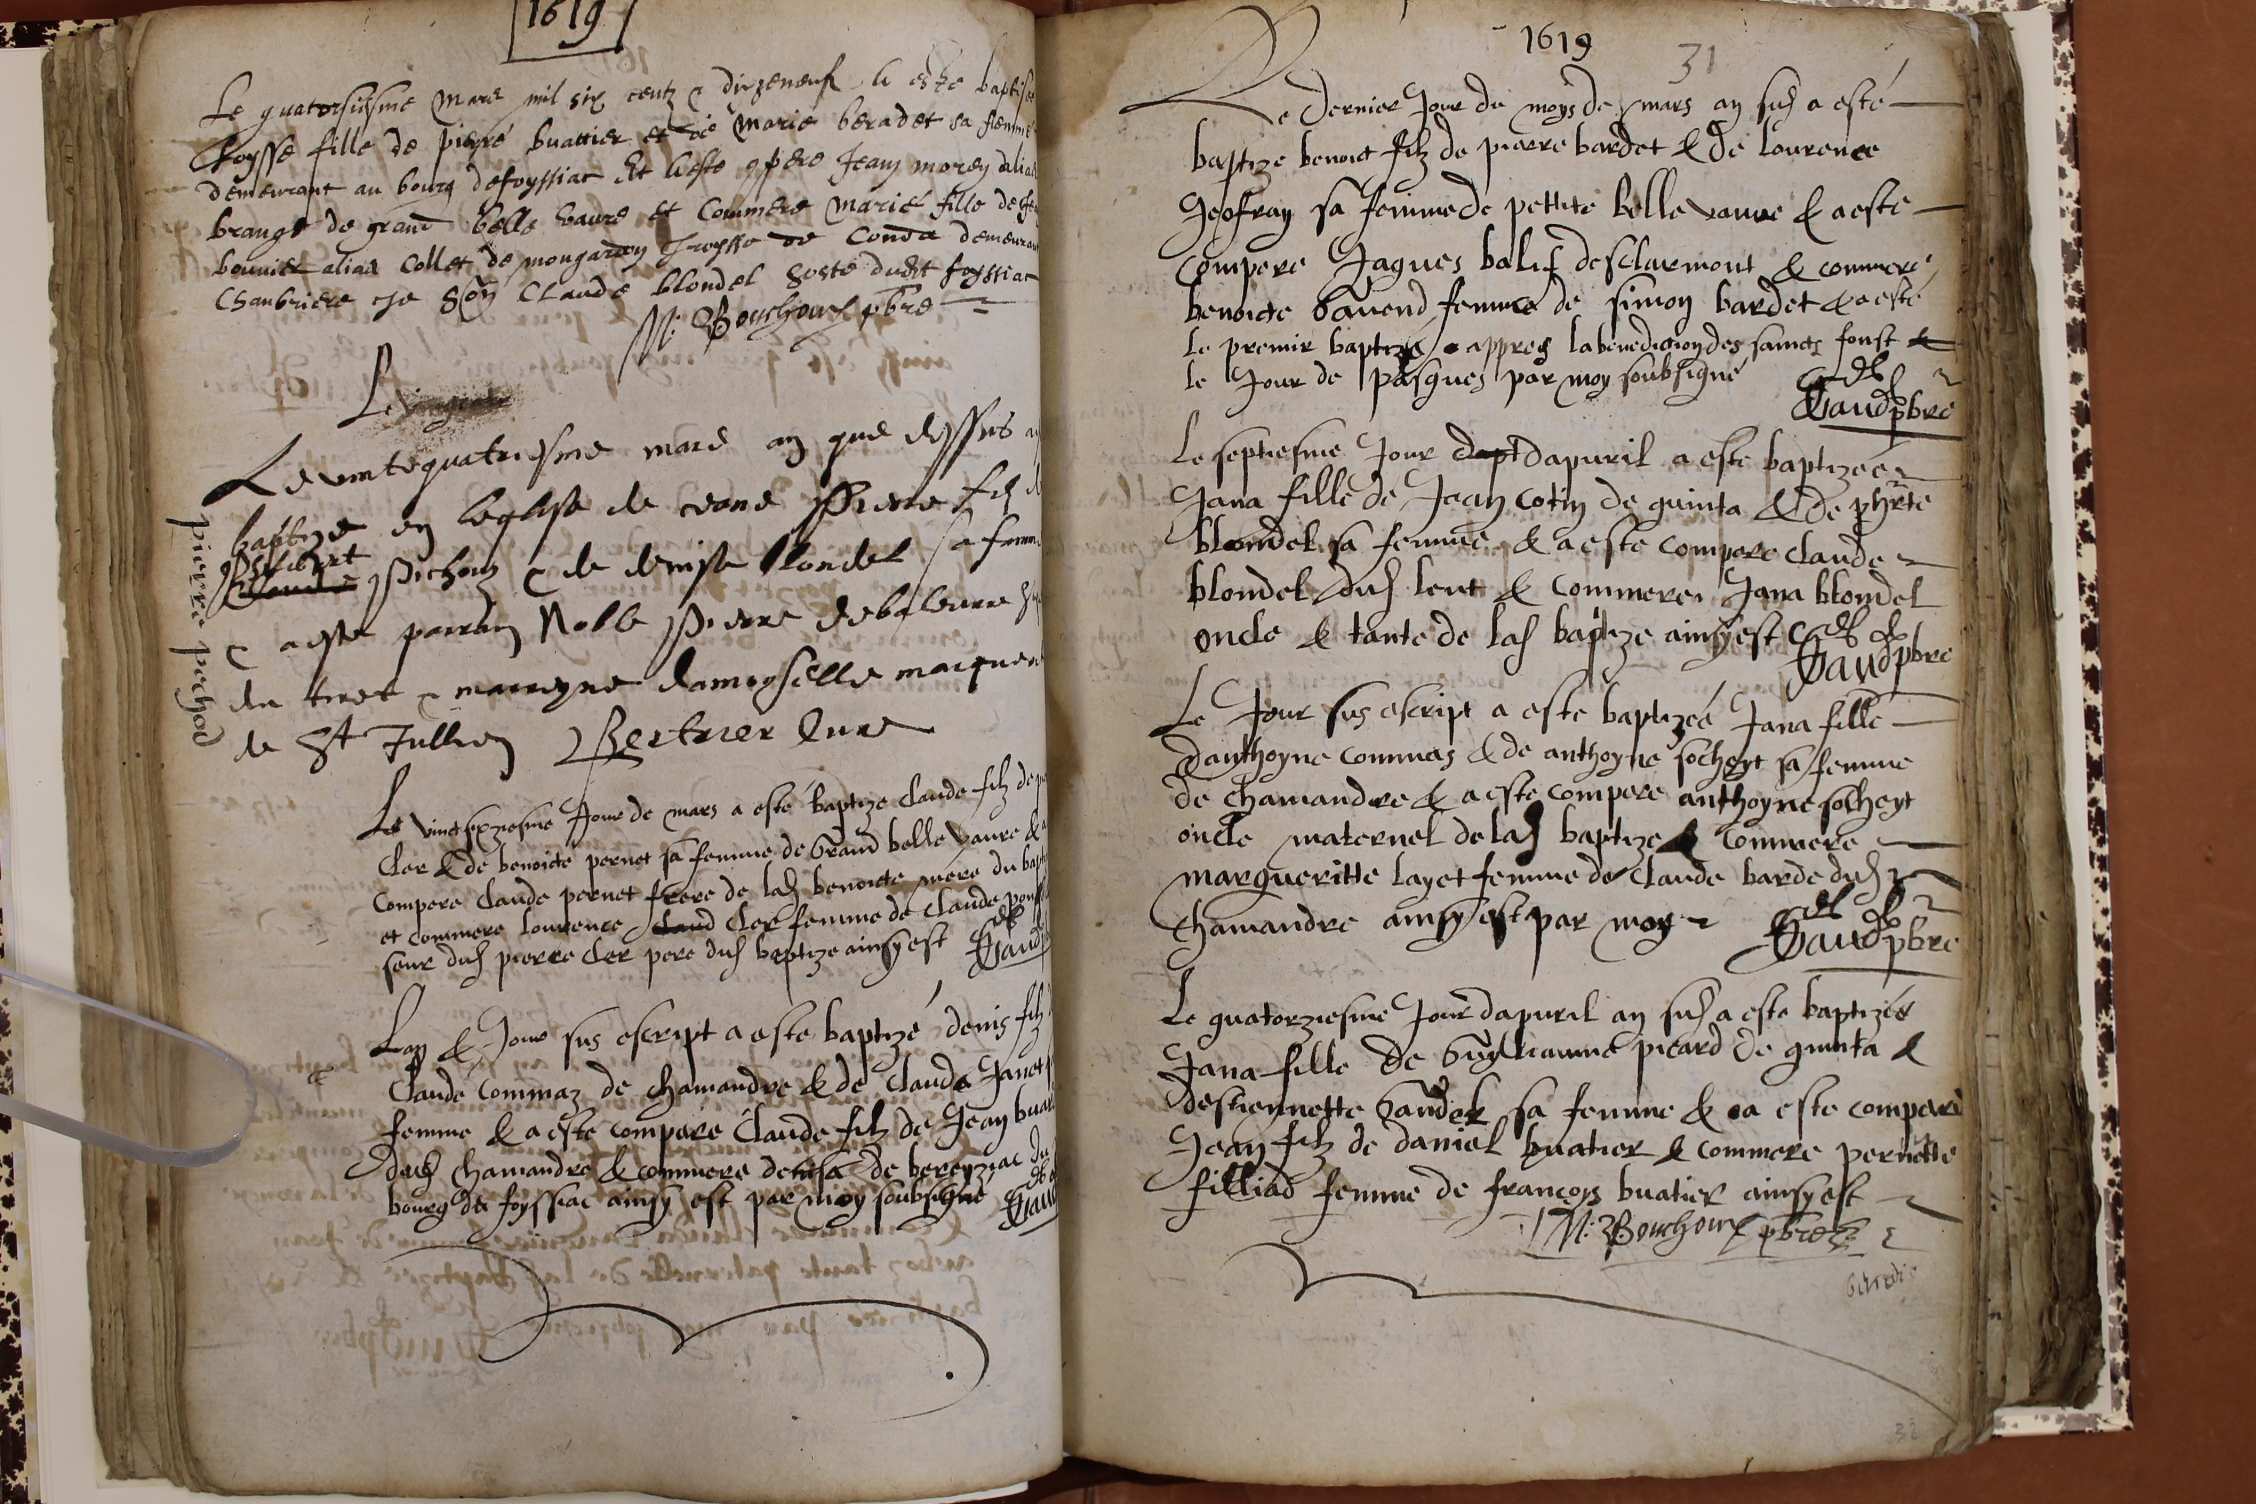 1619
Le quatorsiesme Mars mil six centz & dixeneuf a este baptisee
Loysse fille de pierre buattier et de Marie beradet sa femme
demeurant au bourg defoyssiat Et a este compere Jean morey alias
brangt de grand belle vavre et Commere Marie fille de
bouvier alias Collet de mongardon de Conda demeurant
Chanbriere de Claude blondel hoste dudit foyssiat
M: Bouchoux pbre
Le
Le vintequatriesme mars an que dessus a
baptize en leglise de ceans Pierre filz d
philibert
Claude Pichoz & de denise blondel sa femme
& a este parrain Noble Pierre debaleurre
du tiret & marreyne damoyselle
de St Jullien Bertrier Cure
pierre pechod
Le vinctsixziesme Jour de mars a esté baptize claude filz de
Cler & de benoicte pernet sa femme de Grand belle vavre & a
compere claude pernet frere de lad benoicte mere du bapt
et commere lourence claud Cler femme de Claude pon
seur dud pierre Cler pere dud baptize ainsy est
Gaud
Lan & Jour sus escript a este baptizé denis filz
Claude Commaz de chamandre & de Claude Janet
femme & a este compere Claude filz de Jean buat
dud chamandre & commere denisa de bereyziac du
bourg de foyssiac ainsy est par moy soubsigne
Gaud
1619
31
Le dernier Jour du moys de mars an sud a esté
baptize benoict filz de pierre bardet & de lourence
Geofray sa femme de pettite belle vavre & a este
compere Jaques balif desclarmont & commere
benoicte Gavend femme de simon bardet & a esté
le premir baptize appres la benediction des saincts fonst
le Jour de pasques par moy soubsigné
Gaud pbre
Le septiesme Jour dapt dapuril a este baptizée
Jana fille de Jean Cotin de quinta & de phrte
blondel sa femme & a este compere claude
blondel dud lent & commere Jana blondel
oncle & tante de lad baptize ainsy est
Gaud pbre
Le Jour sus escript a esté baptizée Jana fille
danthoyne commas & de anthoyne socheyt sa femme
de chamandre & a este compere anthoyne socheyt
oncle maternel de lad baptize & commere
margueritte layet femme de Claude barde dud
chamandre ainsy est par moy
Gaud pbre
Le quatorziesme Jour dapuril an sud a este baptizée
Jana fille de Guylliaume picard de quinta &
destiennette Gaudet sa femme & a este compere
Jean filz de daniel buatier & commere pernette
filliad femme de françoys buatier ainsy est
M: Bouchoux pbre
32